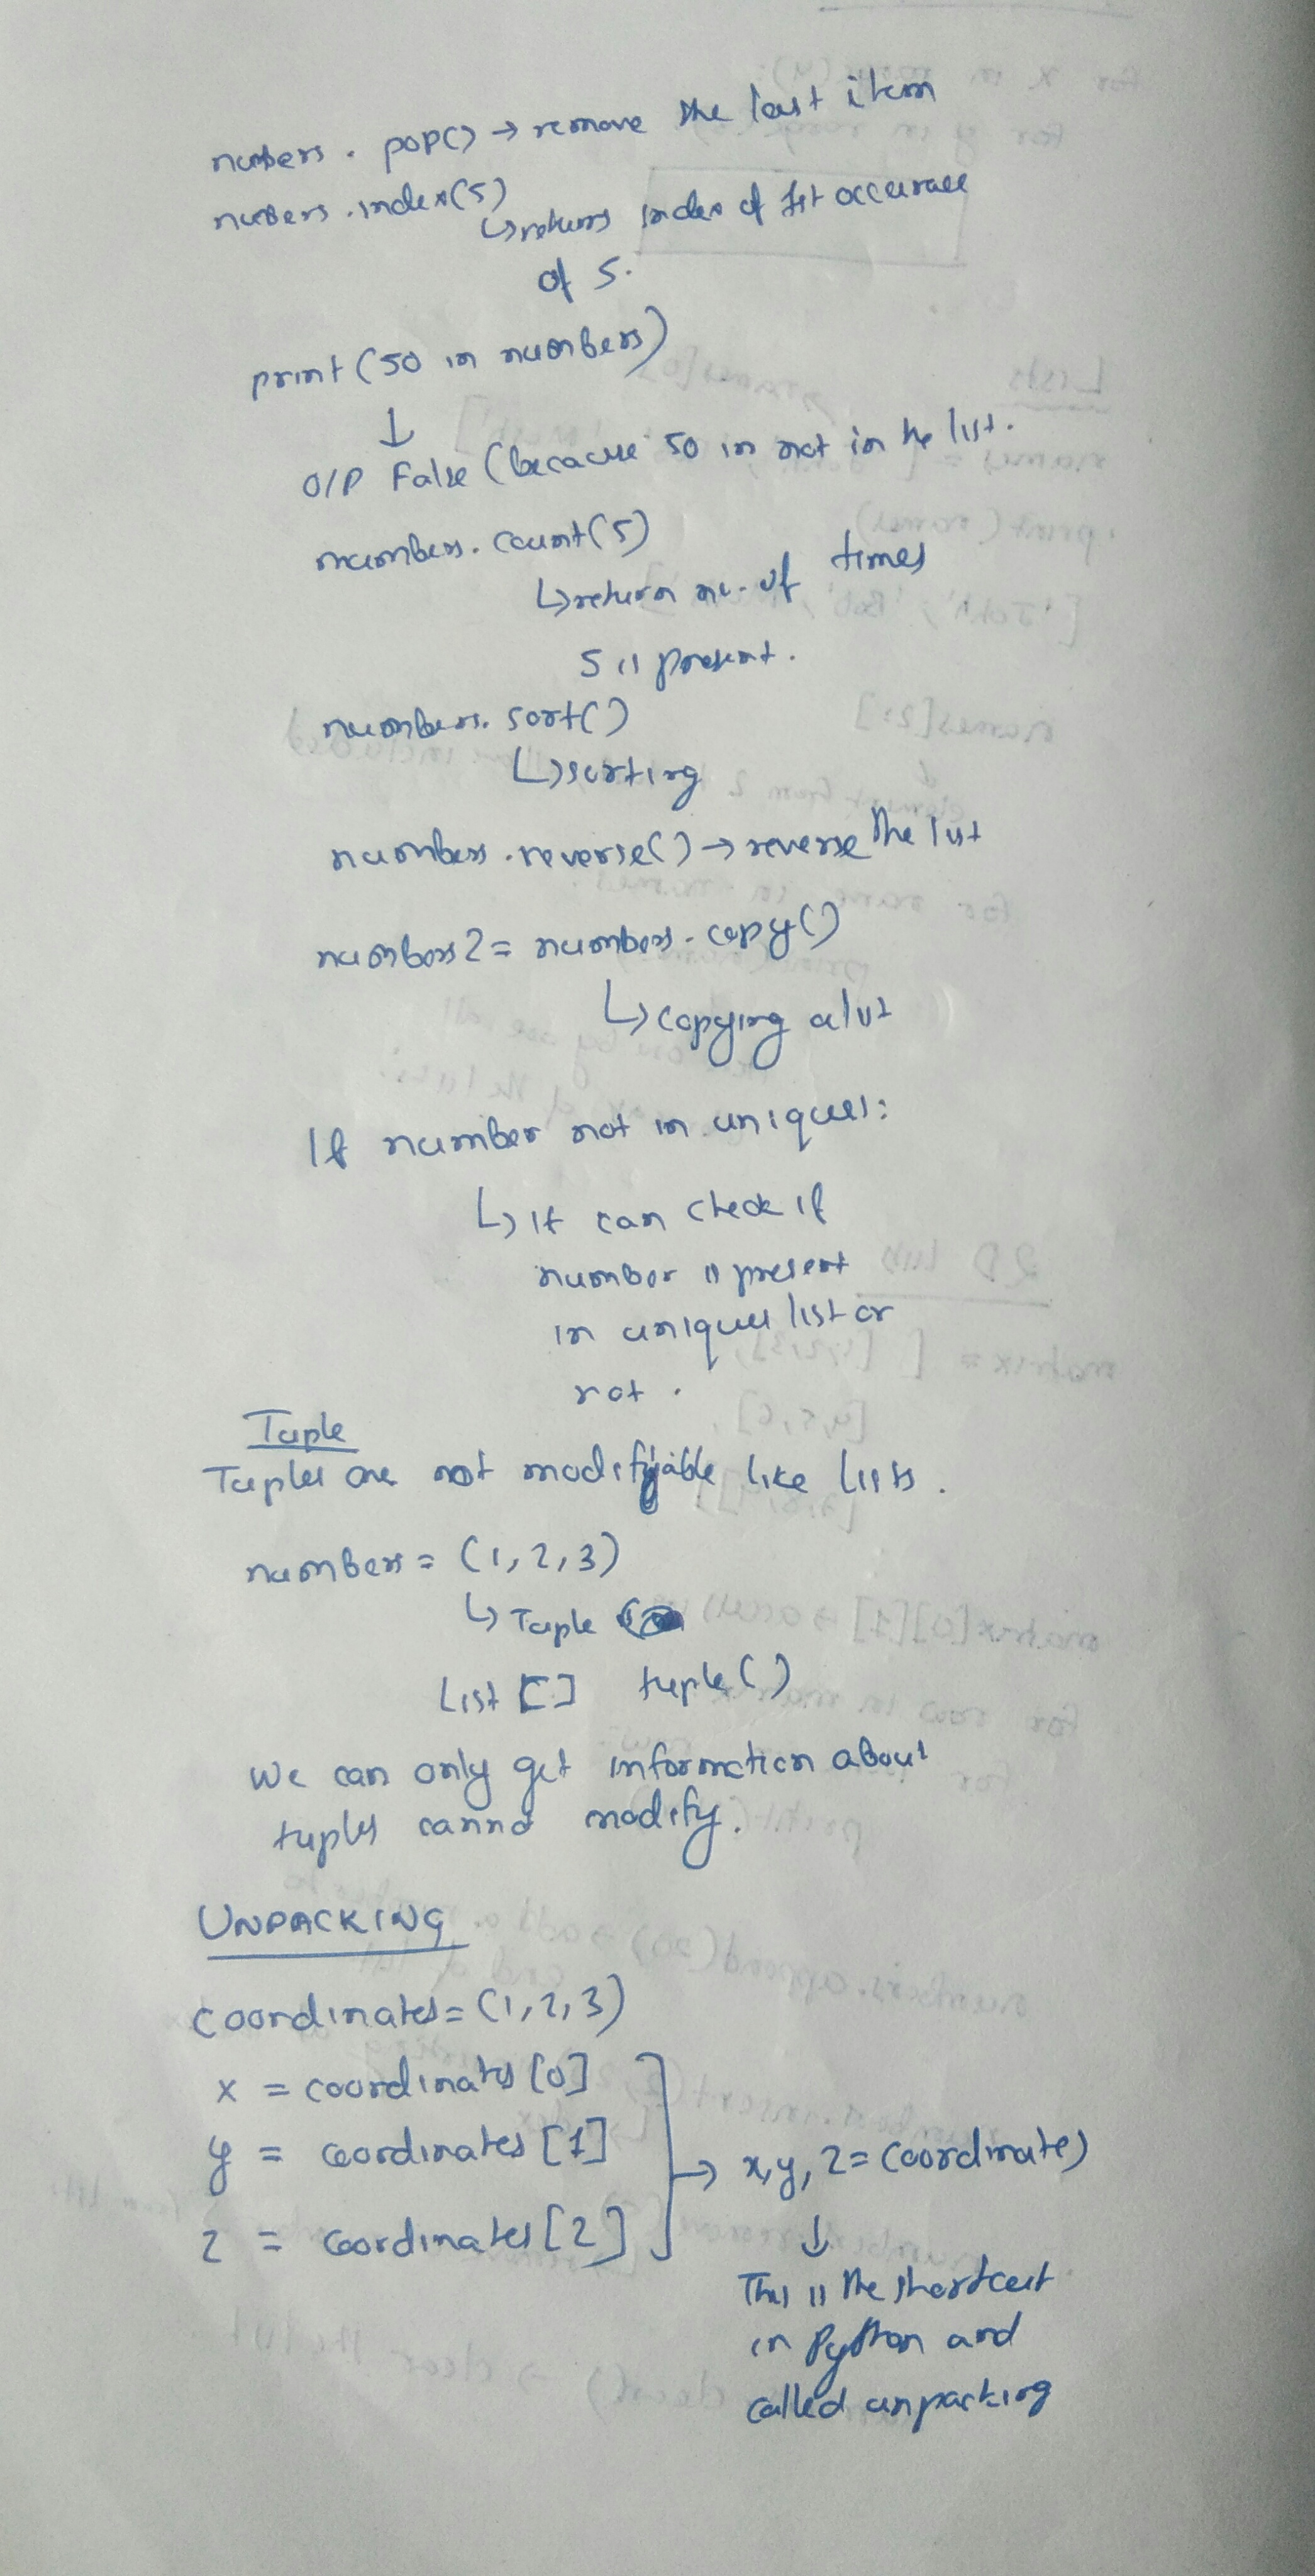 numbers . pop() → remove the last item
numbers .index(5)
↳ returns index of 1st occurance
of 5.
print (50 in numbers)
↓
O/P False (because 50 in not in the list.
numbers. count(5)
↳ return no. of times
5 is present.
numbers. sort()
↳ sorting
numbers .reverse() → reverse the list
numbers2 = numbers . copy()
↳ copying a list
If number not in uniques:
↳ it can check if
number is present
in uniques list or
not .
Tuple
Tuples are not modifyable like lists .
numbers = (1, 2, 3)
↳ Tuple
List [] tuple ()
We can only get information about
tuples cannot modify.
UNPACKING
coordinates = (1, 2, 3)
x = coordinates [0]
y = coordinates [1]
z = coordinates [2]
→ x, y, z = coordinates
↓
This is the shortcut
in Python and
called unpacking